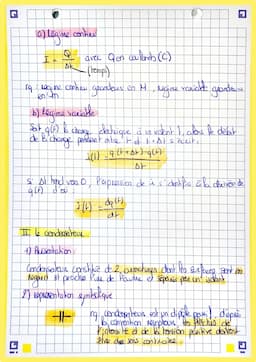 a) Régime continu
I = Q / Δt avec Q en coulombs (C)
(temps)
rq : régime continu grandeurs en M, régime variable grandeurs
en m
b) Régime variable
Soit q(t) la charge électrique à un instant t, alors le débit
de la charge pendant entre t et t + Δt s'écrit.
i(t) = q(t+Δt) - q(t) / Δt
Si Δt tend vers 0, l'expression de i s'identifie à la dérivée de
q(t) d'où :
i(t) = dq(t) / dt
II. le condensateur
1) Présentation
Condensateurs constitué de 2 dont les surfaces sont en
regard et proche l'une de l'autre et séparés par un isolant
2) représentation symbolique
rq condensateurs est un dipôle, d'après
la convention récepteur, les flèches de
l'intensité et de la tension doivent
être de sens contraire.